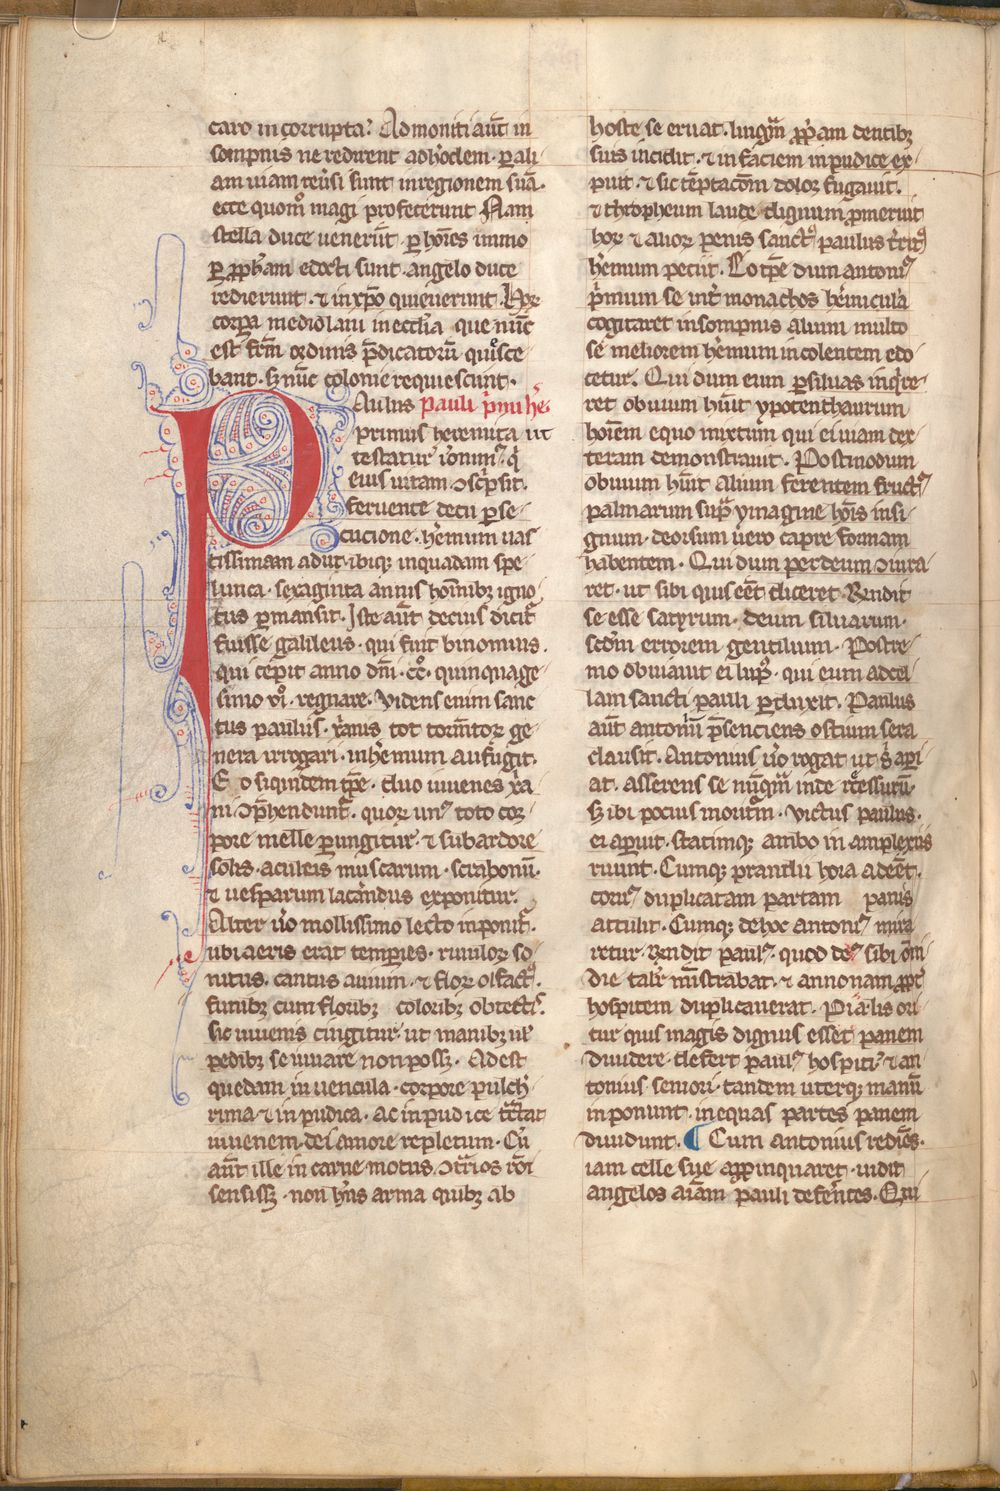 caro in corrupta? Ad moniti aūt in
sompnis ne redirent ad h'odem. ꝑ ali
am uiam reu'si sunt in regionem suā.
ecce quomͦ magi profecerunt Nam
stella duce uenerūt. ꝑ hoīes immo
ꝑ ꝓph'am edocti sunt. angelo duce
redierunt. ⁊ in xp̄o quieuerunt. Hoꝝ
corpa mediolani in eccl'ia que nūc
est fr̄m ordinis p̄dicatoꝝ quiesce
bant. sꝫ nūc colonie requiescunt.
Aulus pauli p'mi he
primus heremita ut
testatur ieronimꝰ. q'
eius uitam ↄsc'psit.
feruente decii ꝑse
cucione. h'emum uas
tissimam adiit. ibiqꝫ in quadam spe
lunca. sexaginta annis hoīnibꝫ igno
tus ꝑmansit. Iste aūt decius dicit̄
fuisse galilens. qui fuit binomius.
qui cepit anno dn̄i. cͨcͦ. quinquage
simo viͦ. regnare. Videns enim sanc
tus paulus. x'anis tot torm̄toꝝ ge
nera irrogari. in h'emum aufugit.
Eo siquidem tꝑe. duo iuuenes xp̄a
ni ↄp̄hendunt̄. quoꝝ unꝰ toto cor
pore melle ꝑungitur. ⁊ sub ardore
solis. aculeis muscarum. scrabonū.
⁊ uesparum lac̄andus exponitur.
Alter u'o mollissimo lecto inponit̄.
ubi aeris erat temꝑies. riuuloꝝ so
nitus. cantus auium. ⁊ floꝝ olfactꝰ.
funibꝫ cum floribꝫ coloribꝫ obtectiˢ.
sic iuuenis cingitur. ut manibꝫ ul'
pedibꝫ se iuuare non possꝫ. Adest
quedam iuuencula. corpore pulch'
rima ⁊ inpudica. ac inpudice t̄ctat
iuuenem dei amore repletum. Cū
aūt ille in carne motus ↄt̄rios rōi
sensissꝫ. non h̄ns arma quibꝫ ab
hoste se eruat. linguā ꝓp'am dentibꝫ
suis incidit. ⁊ in faciem inpudice ex
puit. ⁊ sic te̅ptacōm dolor fugauit.
⁊ thropheum laude dignum ꝓmeruit
hoꝝ ⁊ alioꝝ penis sanctꝰ paulus t̄ritꝰ
h'emum peciit. Eo tꝑe dum antoniꝰ
p'mum se int' monachos h'emicula
cogitaret in sompnis alium multo
se meliorem h'emum incolentem edo
cetur. Qui dum eum ꝑ siluas inq're
ret obuium hūit ypotenthaurum
hoīem equo mixtum qui ei uiam dex
teram demonstrauit. Postmodum
obuium hūit alium ferentem fructꝰ
palmarum sup̄ ymagine hoīs insi
gnum. deorsum uero capre formam
habentem. Qui dum per deum ↄiura
ret. ut sibi quis eēt diceret. Rn̄dit
se esse satyrum. deum siluarum.
scdm errorem gentilium. Postre
mo obuiauit ei lupꝰ. qui eum ad cel
lam sancti pauli ꝑduxit. Paulus
aūt antoniū p̄senciens ostium sera
clausit. Antonius u'o rogat ut s' apꝑi
at. asserens se nūqm̄ inde recessurū.
sꝫ ibi pocius moritm̄. Victus paulus.
ei aperuit. statimqꝫ ambo in amplexus
ruunt. Cumqꝫ prandii hora adeēt.
coruꝰ duplicatam partam panis
attulit. Cumqꝫ de hoc antoniꝰ mira
retur. rn̄dit paulꝰ. quod deꝰ sibi om̄i
die talr' mīstrabat. ⁊ annonam ꝓpt'
hospitem duplicauerat. Pia lis ori
tur quis magis dignus esset panem
diuidere. defert paulꝰ hospiti. ⁊ an
tonius seniori. tandem uterqꝫ manū
inponunt. in equas partes panem
diuidunt. ¶ Cum antonius redies.
iam celle sue appinquaret. uidit
angelos aīam pauli defe'ntes. Qui